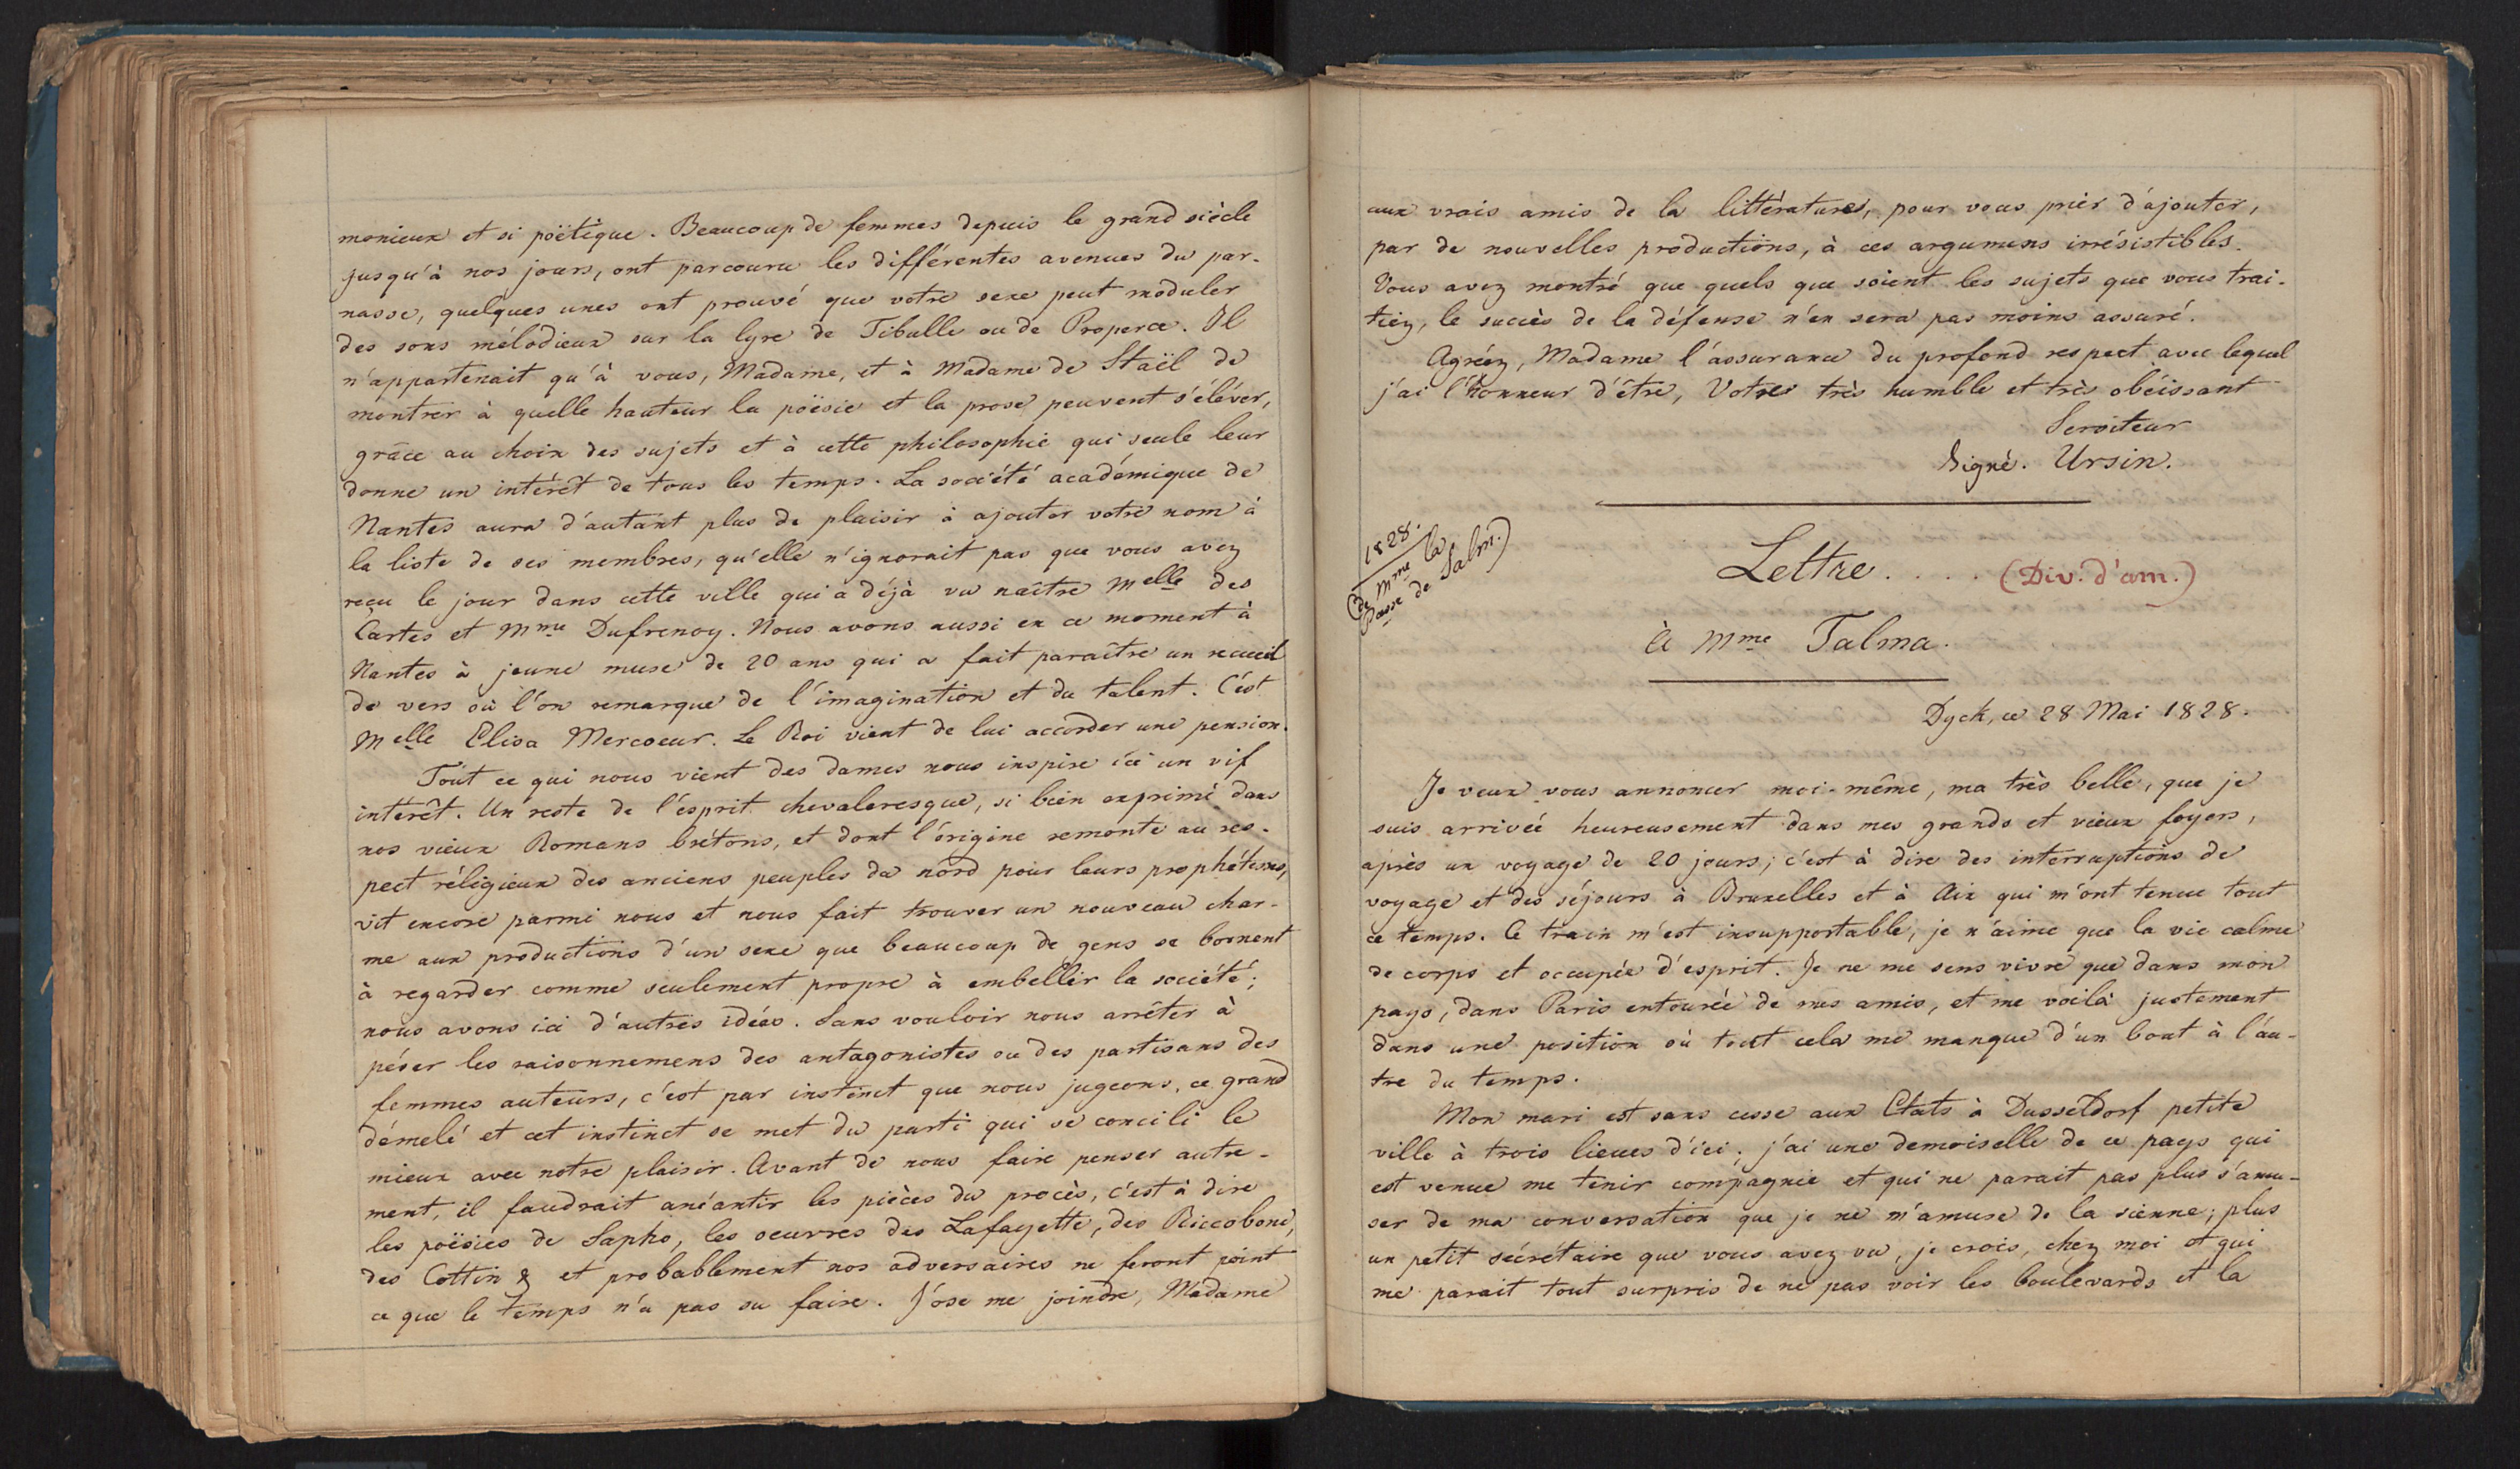 monieux et si poëtique. Beaucoup de femmes depuis le grand siècle
jusqu'à nos jours, ont parcouru les différentes avenues du par-
nasse, quelques unes ont prouvé que votre sexe peut moduler
des sons mélodieux sur la lyre de Tibulle ou de Properce. Il
n'appartenait qu'à vous, Madame, et à Madame de Staël de
montrer à quelle hauteur la poësie et la prose peuvent s'éléver,
grâce au choix des sujets et à cette philosophie qui seule leur
donne un intérêt de tous les temps. La société académique de
Nantes aura d'autant plus de plaisir à ajouter votre nom à
la liste de ses membres, qu'elle n'ignorait pas que vous avez
reçu le jour dans cette ville qui a déjà vu naître Melle des
Cartes et Mme Dufrenoy. Nous avons aussi en ce moment à
Nantes à jeune muse de 20 ans qui a fait paraître un recueil
de vers où l'on remarque de l'imagination et du talent. C'est
Melle Elisa Mercoeur. Le Roi vient de lui accorder une pension.
Tout ce qui nous vient des dames nous inspire ici un vif
intérêt. Un reste de l'esprit chevaleresque, si bien exprimé dans
nos vieux Romans brétons, et dont l'origine remonte au res-
pect réligieux des anciens peuples du nord pour leurs prophétesses,
vit encore parmi nous et nous fait trouver un nouveau char-
me aux productions d'un sexe que beaucoup de gens se bornent
à regarder comme seulement propre à embellir la société;
nous avons ici d'autres idées. Sans vouloir nous arrêter à
péser les raisonnemens des antagonistes ou des partisans des
femmes auteurs, c'est par instinct que nous jugeons, ce grand
démelé et cet instinct se met du parti qui se concili le
mieux avec notre plaisir. Avant de nous faire penser autre-
ment, il faudrait anéantir les pièces du procès, c'est à dire
les poësies de Sapho, les oeuvres des Lafayette, des Riccoboni,
des Cottin & et probablement nos adversaires ne feront point
ce que le temps n'a pas su faire. J'ose me joindre, Madame
aux vrais amis de la littérature, pour vous prier d'ajouter,
par de nouvelles productions, à ces argumens irrésistibles.
Vous avez montré que quels que soient les sujets que vous trai-
tiez, le succès de la défense n'en sera pas moins assuré.
Agréez, Madame l'assurance du profond respect avec lequel
j'ai l'honneur d'être, Votre très humble et très obéissant
Serviteur
Signé. Ursin.
1828.
(de Mme la
Psse de Salm.)
Lettre. . . . . (Div. d'am.)
à Mme Talma.
Dyck, ce 28 Mai 1828.
Je veux vous annoncer moi-même, ma très belle, que je
suis arrivée heureusement dans mes grands et vieux foyers,
après un voyage de 20 jours; c'est à dire des interruptions de
voyage et des séjours à Bruxelles et à Aix qui m'ont tenue tout
ce temps. Ce train m'est insupportable; je n'aime que la vie calme
de corps et occupée d'esprit. Je ne me sens vivre que dans mon
pays, dans Paris entourée de mes amis, et me voilà justement
dans une position où tout cela me manque d'un bout à l'au-
tre du temps.
Mon mari est sans cesse aux Etats à Dusseldorf petite
ville à trois lieues d'ici; j'ai une demoiselle de ce pays qui
est venue me tenir compagnie et qui ne parait pas plus s'amu-
ser de ma conversation que je ne m'amuse de la sienne; plus
un petit sécrétaire que vous avez vu, je crois, chez moi et qui
me parait tout surpris de ne pas voir les boulevards et la